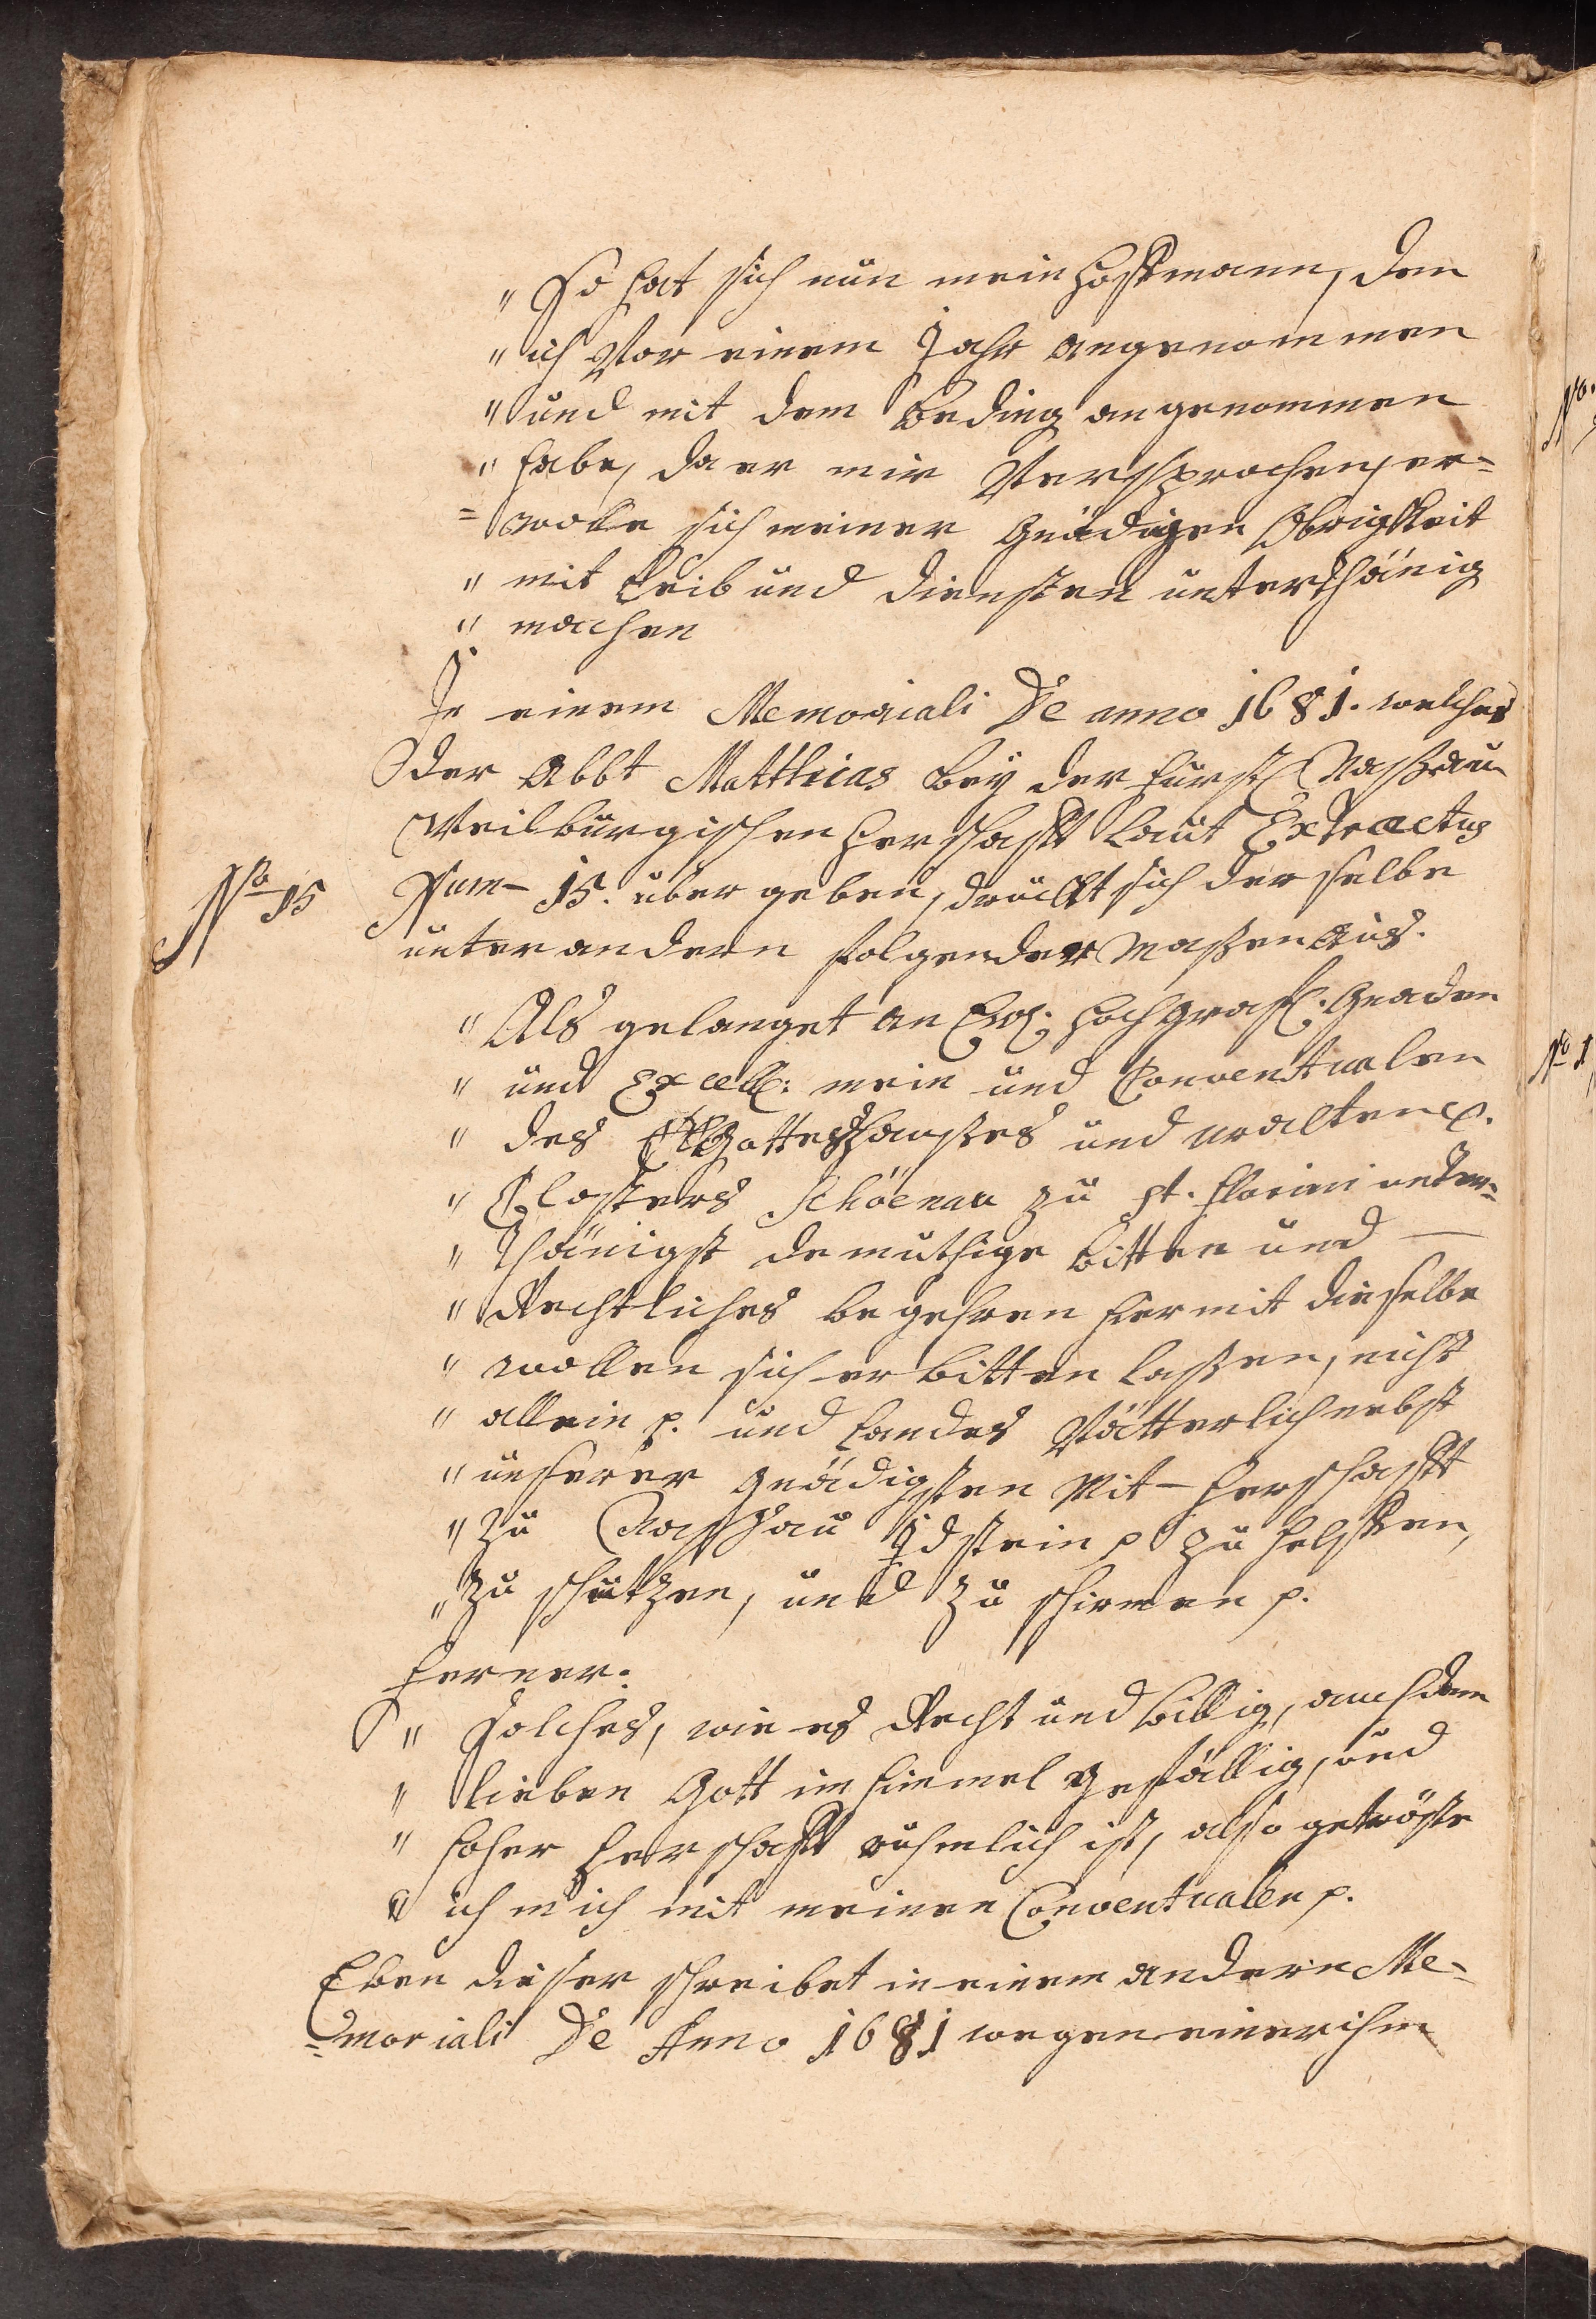 " So hat sich nun mein Hoffmann, den
" ich Vor einem Jahr angenommen
" und mit dem Beding angenommen
" habe, da er mir Versprochen, er=
= wolle sich meiner Gnädigen Obrigkeit
" mit Leib und Diensten unterthänig
" machen
In einem Memoriali De anno 1681. welches
der Abbt Matthias bey der Fürstl Naßau
Weilburgischen Herschafft laut Extractus
No 15
Num– 15. übergeben, drückt sich derselbe
unter andern folgender Maßen aus.
" Als gelanget an Ew. Hochgräfl. Gnaden
" und Excell: mein und Conventualen
" des Gotteshaußes und uralten p.
" Closters Schöenau zu St. Florini unter=
" thänigst demüthige Bitten und —
" Rechtliches begehren hiermit dieselbe
" wollen sich erbitten laßen, nicht
" allein p. und Landes Vätterlich nebst
" unserer Gnädigsten Mit– Herschafft
" zu Nassau Idstein p zu helffen,
" zu schützen, und zu schirmen p.
Ferner.
" Solches, wie es Recht und Billig, auch dem
" lieben Gott im Himmel Gefällig, und
" hoher Herschafft rühmlich ist, also getröste
" ich mich mit meinen Conventualen p.
Eben dieser schreibet in einem andern Me=
=moriali De Anno 1681 wegen einer ihm